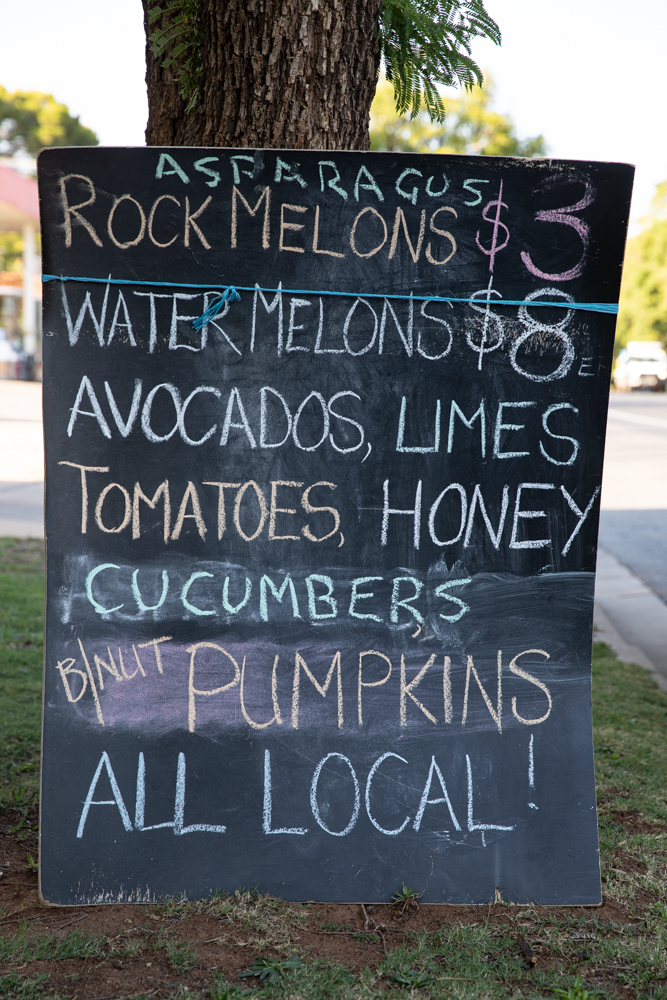 ASPARAGUS
ROCK MELONS $3
WATER MELONS $8
AVOCADOS, LIMES
TOMATOES, HONEY
CUCUMBERS,
B/NUT PUMPKINS
ALL LOCAL!